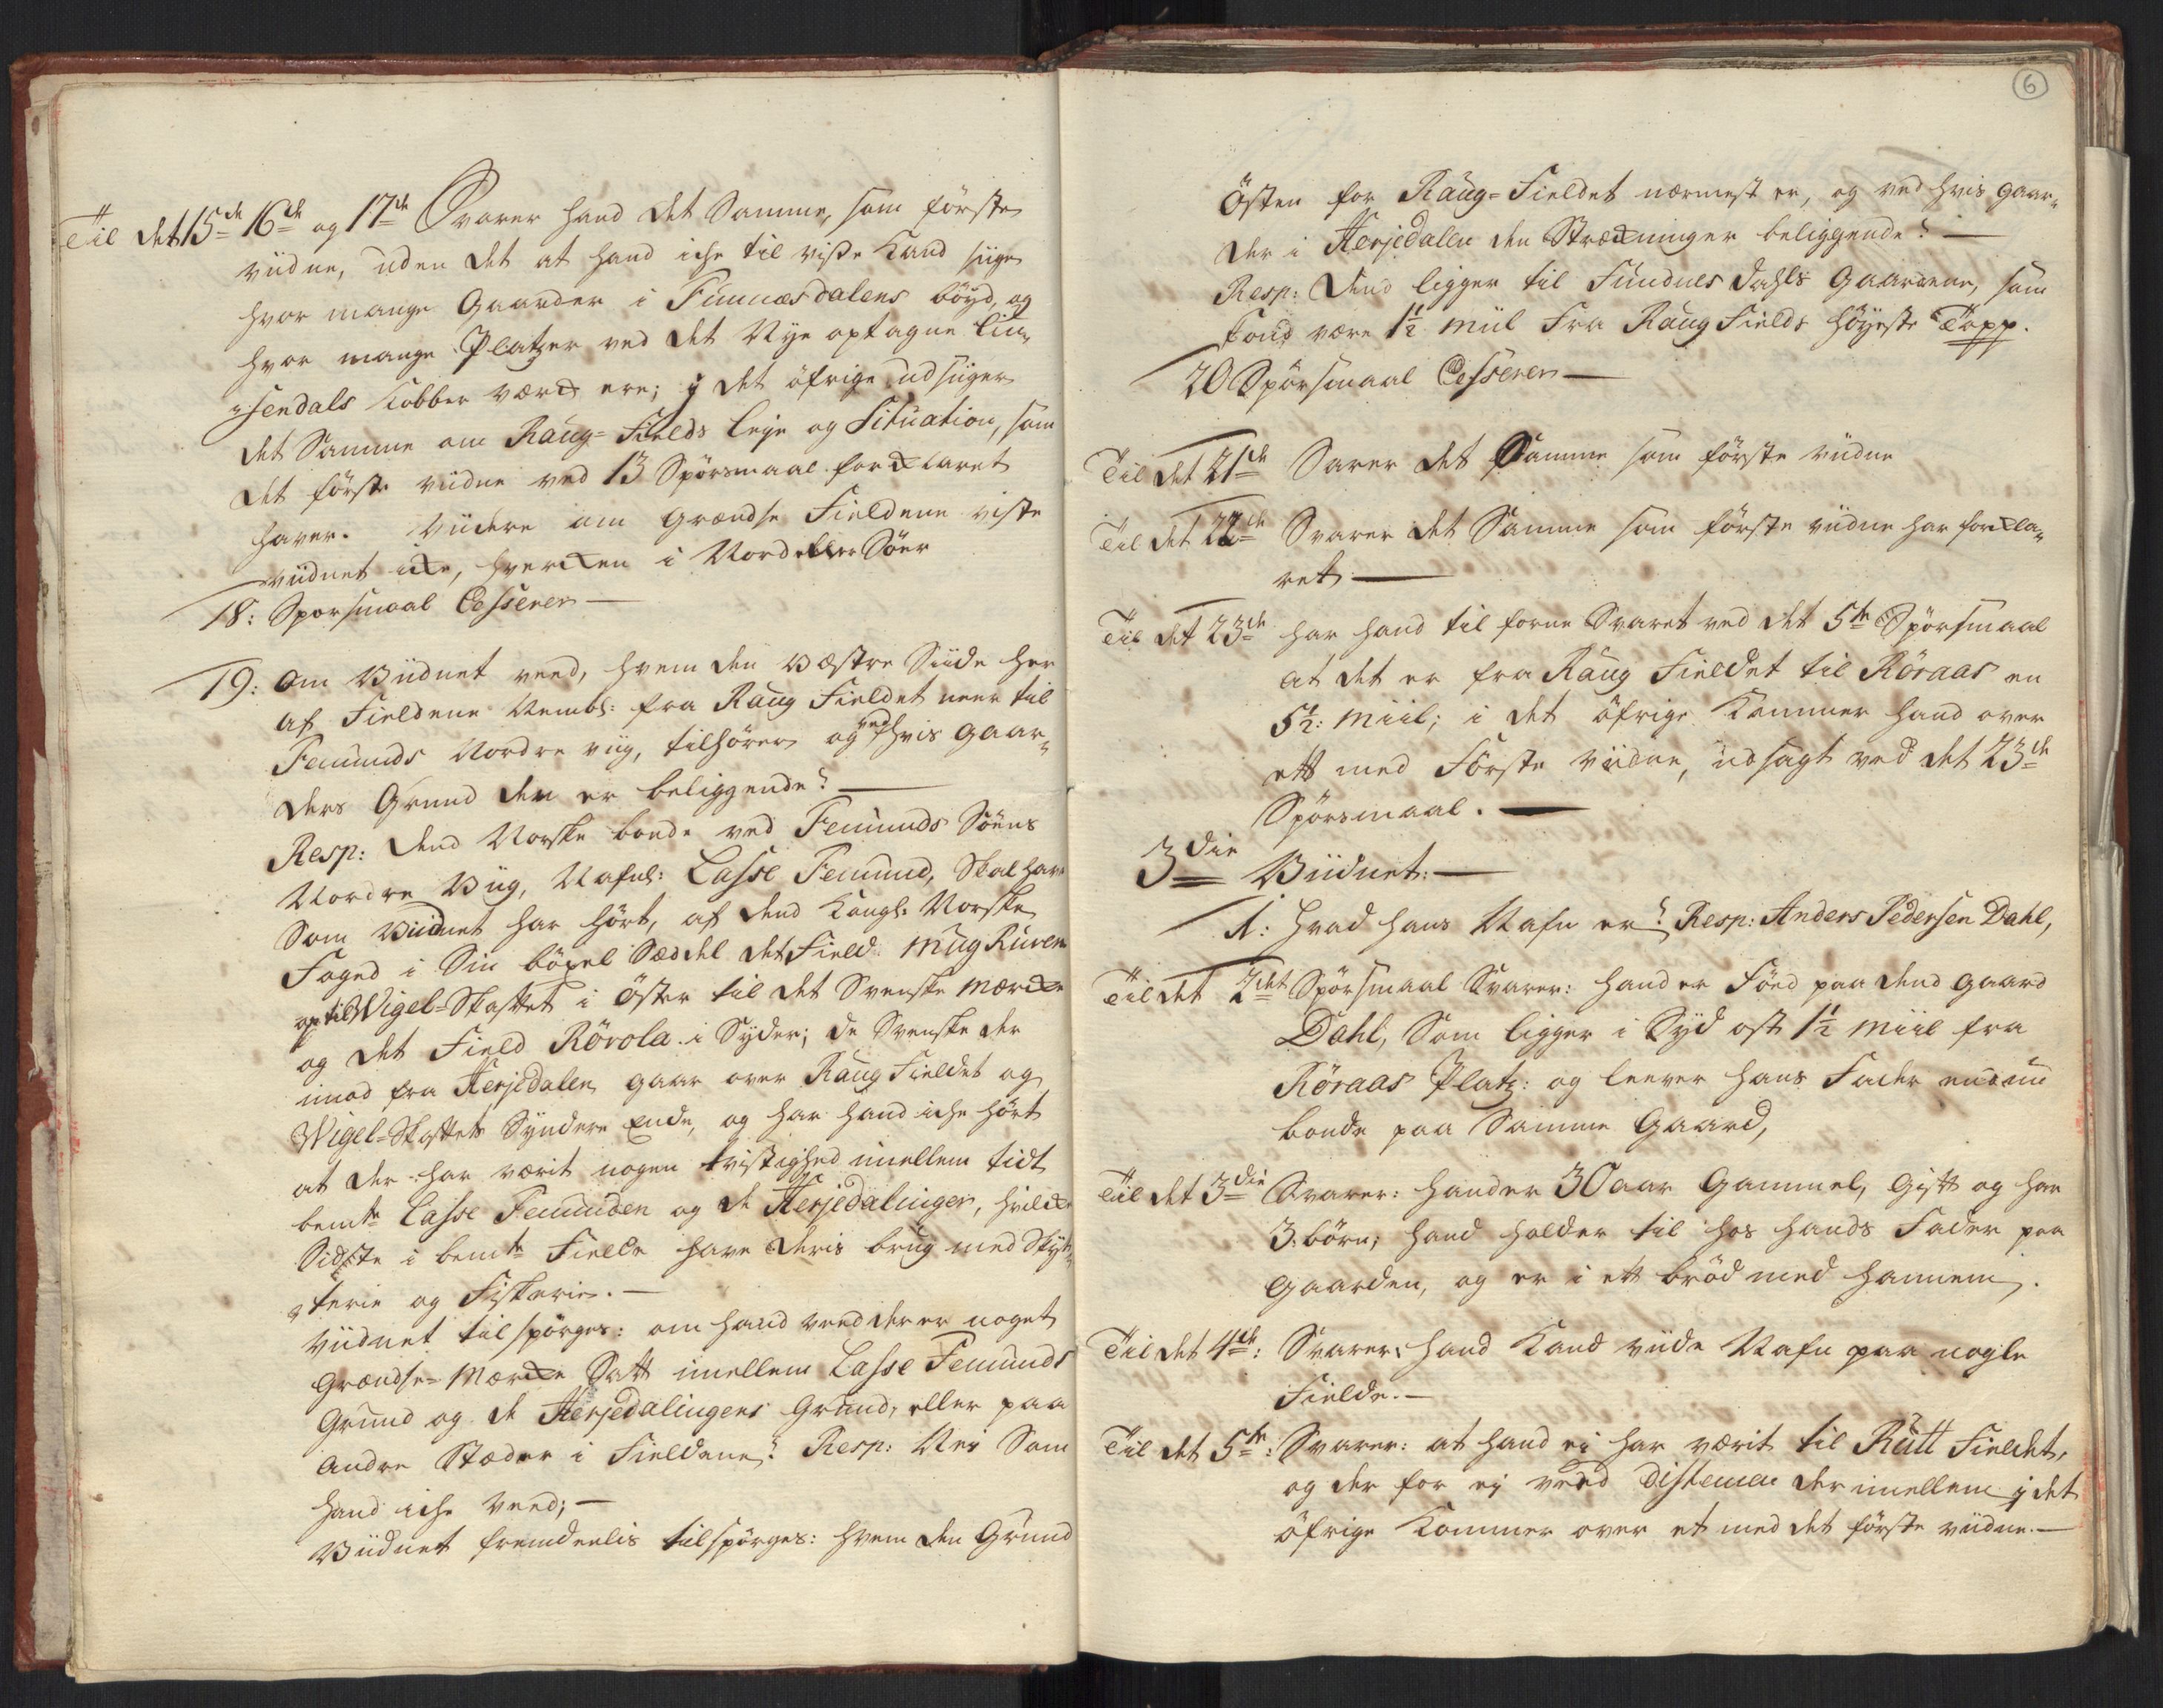 Til det 15de 16de og 17de Svarer hand det Samme, som förste
viidne, uden det at hand iche til visse Kand siige
hvor mange Gaarder i Funnæsdalens böyd, og
hvor mange Platzer ved det Nye optagne Liu„
„sendals Kobber værck ere; i det öfrige udsiiger
det Samme om Raug=Fields leje og Situation, som
det förste viidne ved 13 Spörsmaal forcklaret
haver. Viidere om Grændse Fieldene viste
viidnet icke, hvercken i Nord eller Söer
18: Sporsmaal Cesserer —
19: Om Viidnet veed, hvem den Væstre Siide her
af Fieldene Nembl: fra Raug Fieldet neer til
Femunds Nordre viig, tilhörer og ved hvis Gaar„
ders Grund den er beliggende? —
Resp: Dend Norske bonde ved Femunds Söens
Nordre Viig, Nafnl: Lasse Femund, Skal have
Som Viidnet har hört, af dend Kongl: Norske
Foged i Sin böxel Sæddel det Field Mug Ruven
op til Wigel=Skaftet i Öster til det Svenske Mærcke
og det Field Rövola i Syder; de Svenske der
imod fra Herjedalen gaar over Raug Fieldet og
Wigel=Skaftets Syndere Ende, og har hand iche hört
at der har værit nogen tvistighed imellem tidt
bemte Lasse Femunden og de Herjedalinger, hvilcke
Sidste i bemte Fielde have deris brug med Skyt„
„terie og Fiskerie. —
Viidnet tilspörges: om hand veed der er noget
Grændse=Mærcke Satt imellem Lasse Femunds
Grund og de Herjedalingers Grund, eller paa
Andre Stæder i Fieldene? Resp: Nei Som
hand iche veed; —
Viidnet fremdeelis tilspörges: hvem den Grund
6
Östen for Raug=Fieldet nærmest er, og ved hvis Gaar„
der i Herjedalen den Stræckninger beliggende? —
Resp: Dend ligger til Fundnes Dahls Gaardene, som
Kand være 1½ Miil Fra Raug Fields höyeste Topp.
20 Spörsmaal Cesserer —
Til det 21de Sarer det Samme som förste viidne
Til det 22de Svarer det Samme som förste viidne har forckla„
ret —
Til det 23de har hand til forne Svaret ved det 5te Spörsmaal
at det er fra Raug Fieldet til Röraas en
5½: Miil; i det öfrige Kommer hand over
ett med Förste viidne, udsagt ved det 23de
Spörsmaal. —
3die Viidnet: —
1: Hvad hans Nafn er? Resp: Anders Pedersen Dahl,
Til det 2det Spörsmaal Svarer: hand er Föed paa dend gaard
Dahl, Som ligger i Syd ost 1½ Miil fra
Röraas Platz: og leever hans Fader endnu
bonde paa Samme Gaard,
Til det 3die Svarer: hand er 30 aar Gammel, Gift og har
3: börn; hand holder til hos hands Fader paa
Gaarden, og er i ett bröd med hannem.
Til det 4de: Svarer: hand Kand viide Nafn paa nogle
Fielde. —
Til det 5te: Svarer: at hand ei har værit til Rutt Fieldet,
og der for ej veed distancen der imellem i det
öfrige Kommer over et med det förste viidne. —